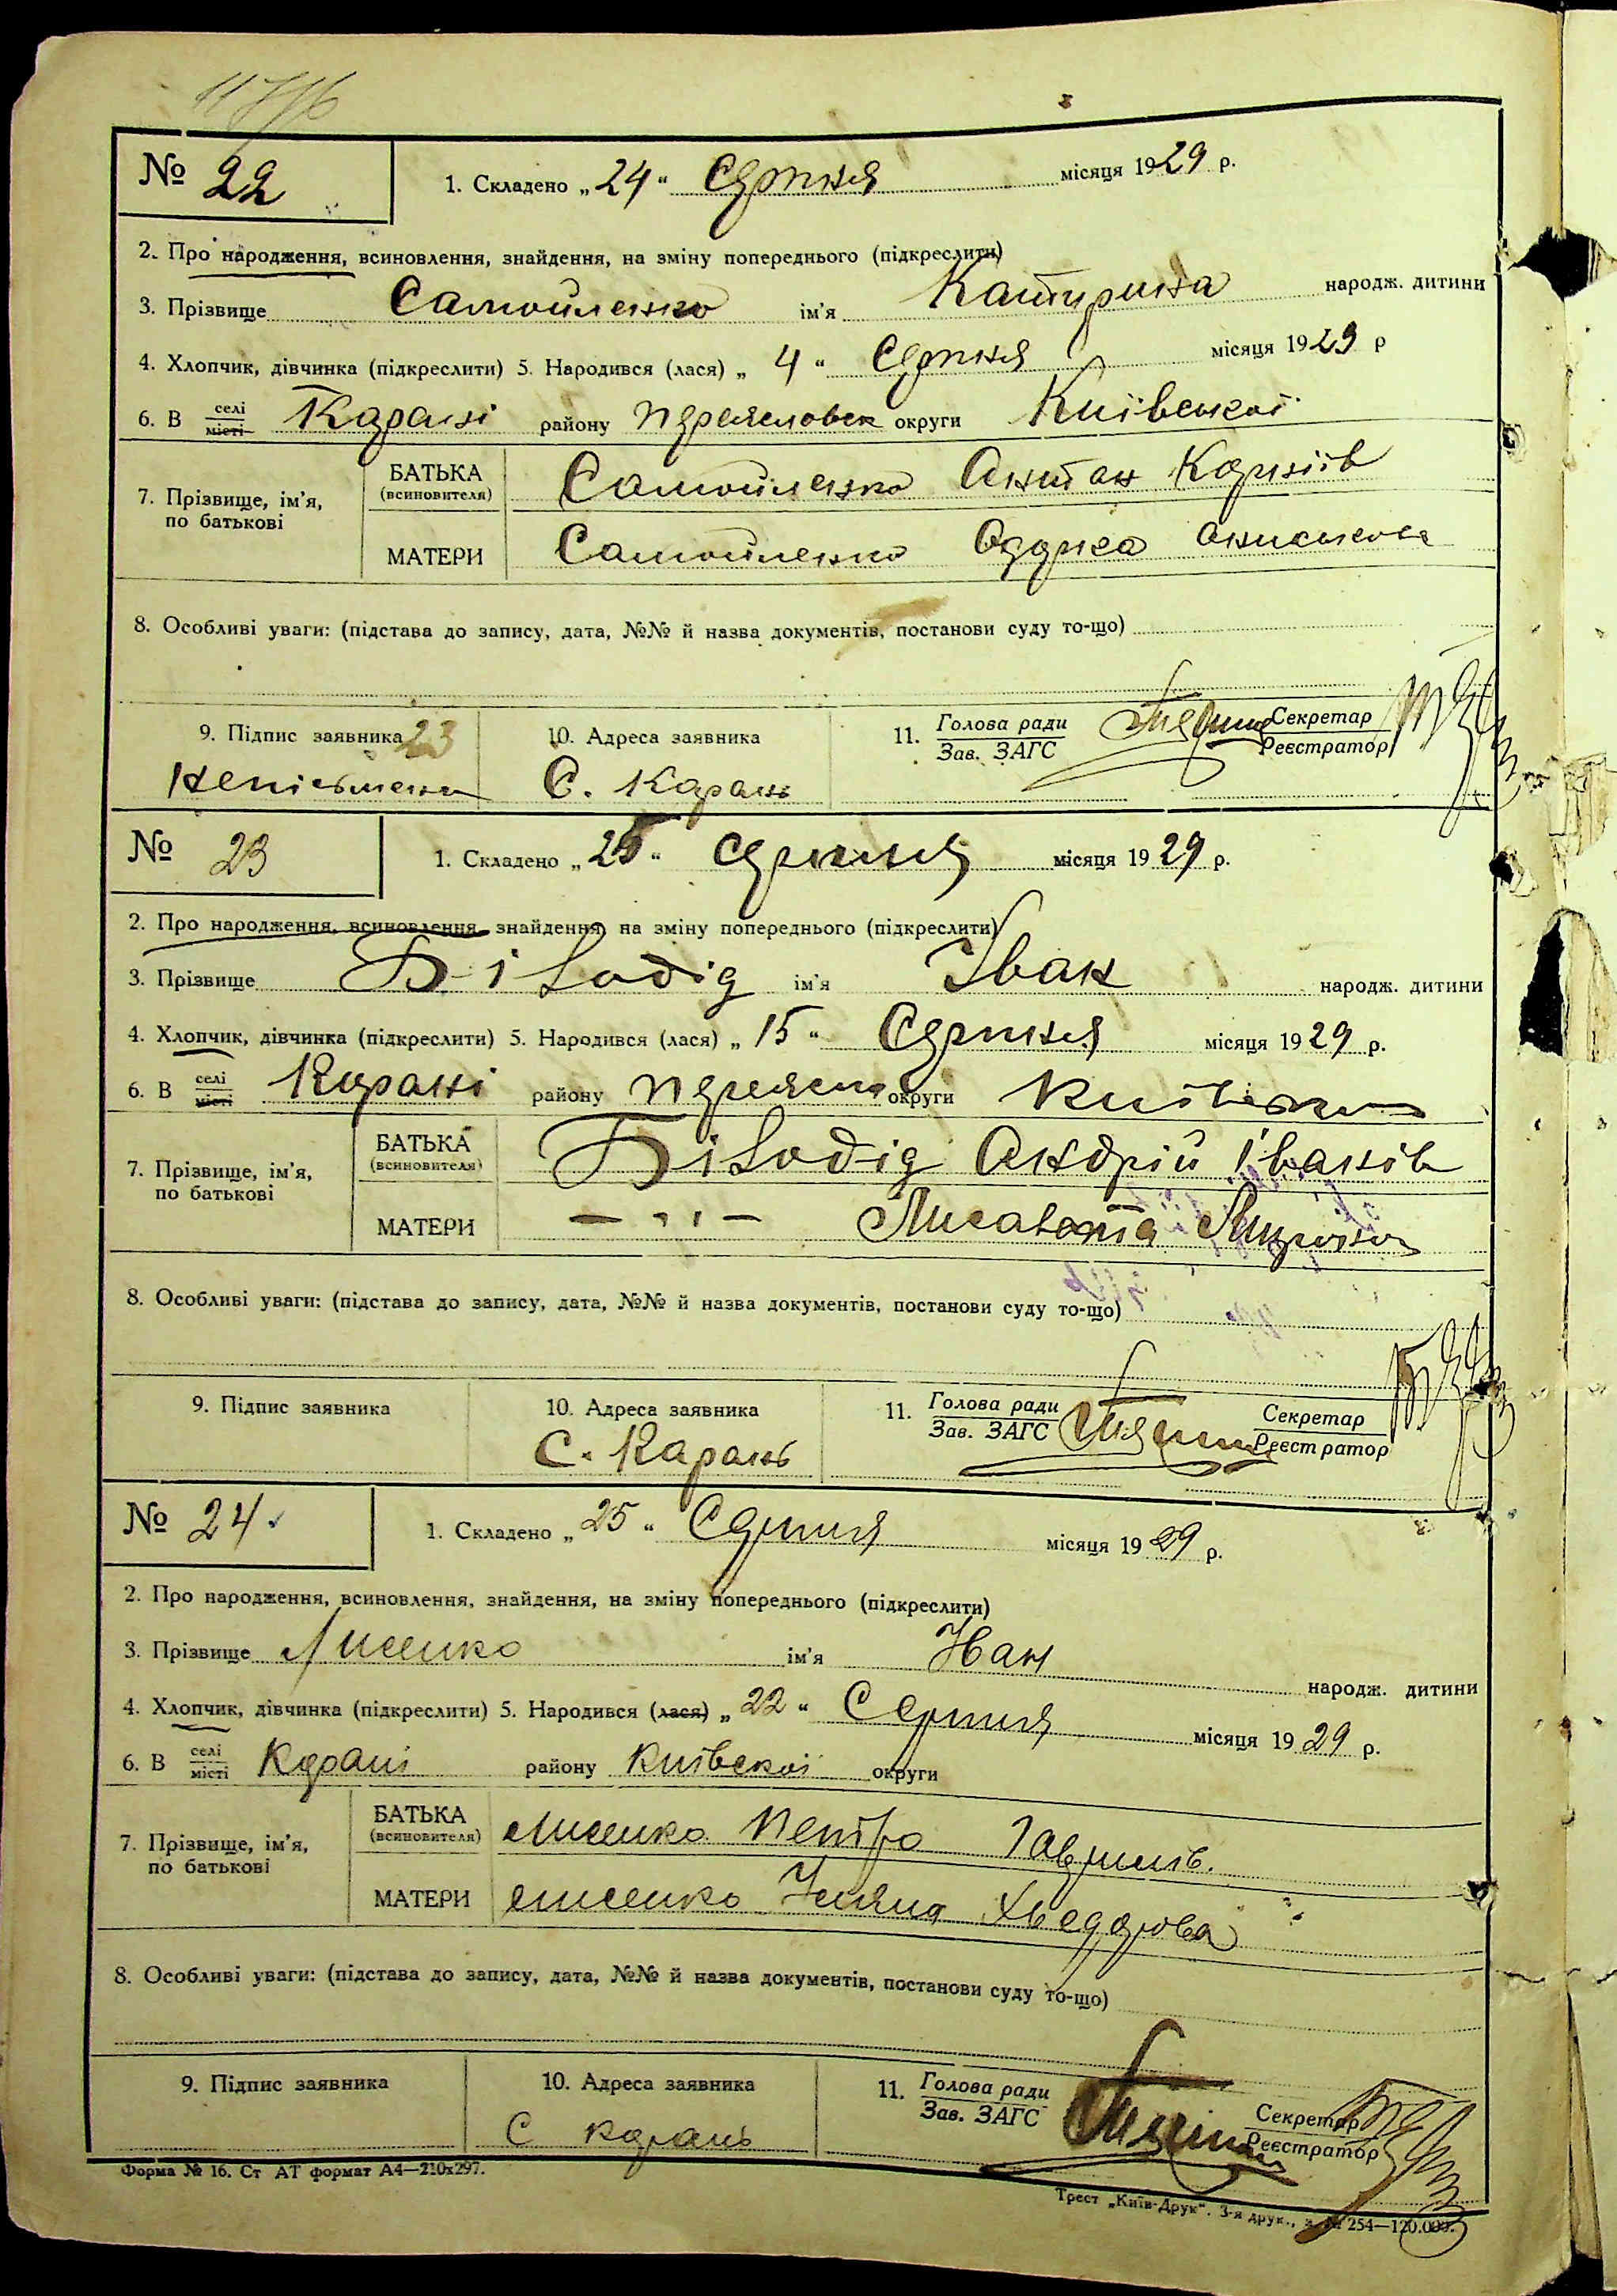 № 22
1. Складено „ 24 “ Серпня місяця 1929 р.
2. Про народження, всиновлення, знайдення, на зміну попереднього (підкреслити)
3. Прізвище Самойленко ім'я Катирина народж. дитини
4. Хлопчик, дівчинка (підкреслити) 5. Народився (лася) „ 4 “ Серпня місяця 1929 р
6. В селі місті Карані району Переясловск округи Київської
7. Прізвище, ім'я, по батькові
БАТЬКА (всиновителя) Самойленко Антон Корніїв
МАТЕРИ Самойленко
8. Особливі уваги: (підстава до запису, дата, №№ й назва документів, постанови суду то-що)
9. Підпис заявника 23 10. Адреса заявника 11. Голова ради Зав. ЗАГС Секретар Реєстратор
С. Карань
№ 23
1. Складено „ 25 “ серпня місяця 1929 р.
2. Про народження, всиновлення, знайдення, на зміну попереднього (підкреслити)
3. Прізвище Білодід ім'я Іван народж. дитини
4. Хлопчик, дівчинка (підкреслити) 5. Народився (лася) „ 15 “ Серпня місяця 1929 р.
6. В селі місті Карані району округи
7. Прізвище, ім'я, по батькові
БАТЬКА (всиновителя) Білодід Андрій Іванів
МАТЕРИ — " —
8. Особливі уваги: (підстава до запису, дата, №№ й назва документів, постанови суду то-що)
9. Підпис заявника 10. Адреса заявника 11. Голова ради Зав. ЗАГС Секретар Реєстратор
С. Карань
№ 24
1. Складено „ 25 “ Серпня місяця 1929 р.
2. Про народження, всиновлення, знайдення, на зміну попереднього (підкреслити)
3. Прізвище Лисенко ім'я Іван народж. дитини
4. Хлопчик, дівчинка (підкреслити) 5. Народився (лася) „ 22 “ Серпня місяця 1929 р.
6. В селі місті Карані району Київської округи
7. Прізвище, ім'я, по батькові
БАТЬКА (всиновителя) Лисенко Петро Гаврилів.
МАТЕРИ лисенко Уляна Хведорова
8. Особливі уваги: (підстава до запису, дата, №№ й назва документів, постанови суду то-що)
9. Підпис заявника 10. Адреса заявника 11. Голова ради Зав. ЗАГС Секретар Реєстратор
С Карань
Форма № 16. Ст АТ формат А4—210x297.
Трест „Київ-Друк“. 3-я друк., з. № 254—120.000.